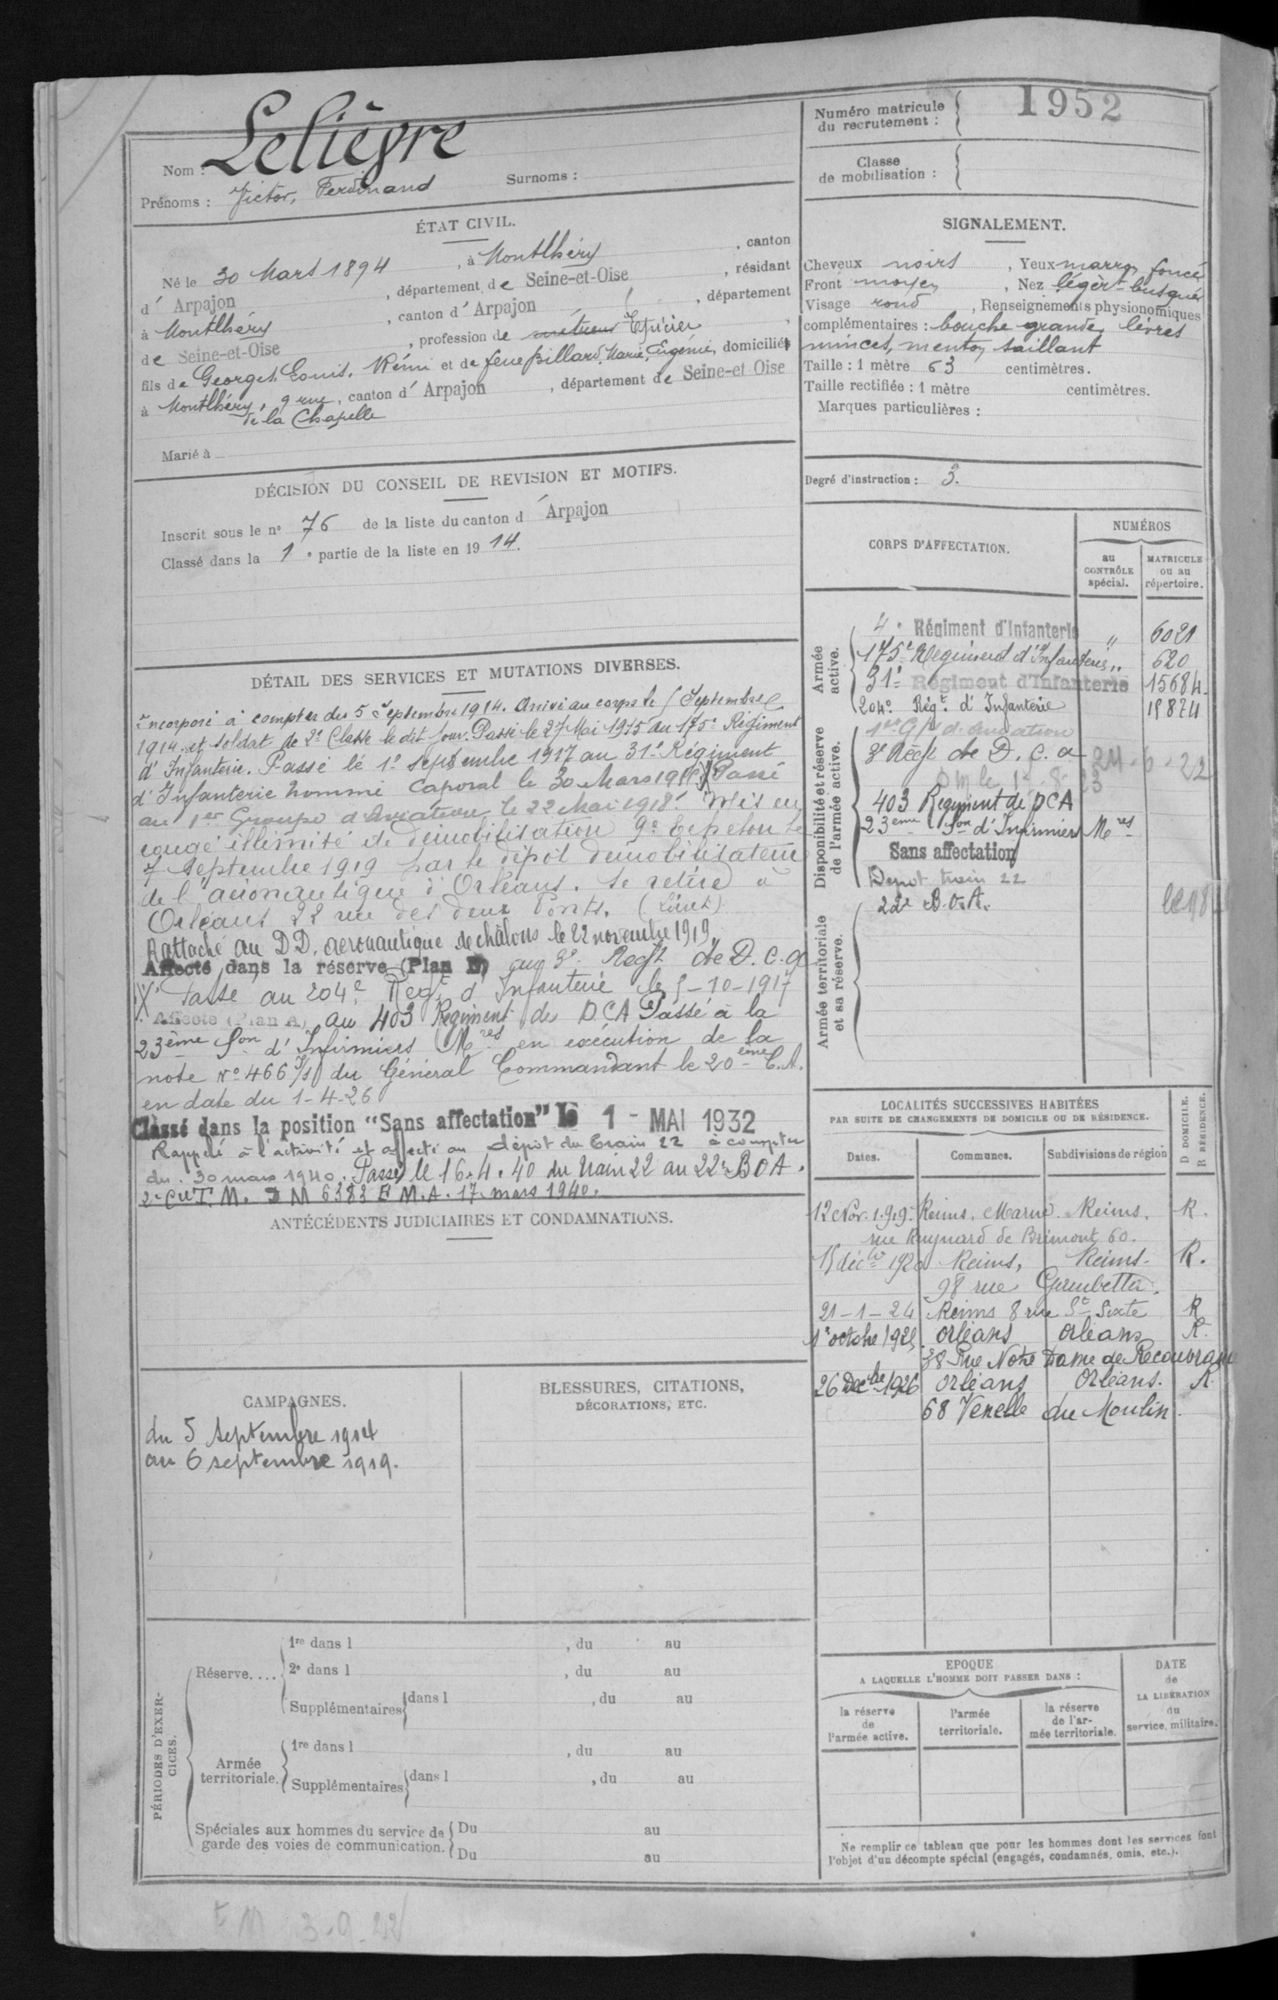 Nom : Lelièvre
Prénoms : Victor, Ferdinand Surnoms :
ÉTAT CIVIL.
Né le 30 Mars 1894, à Montlhéry, canton
d' Arpajon, département de Seine-et-Oise, résidant
à Montlhéry, canton d' Arpajon, département
de Seine-et-Oise, profession de Epicier,
fils de Georges, Louis, Rémi et de feue Billard, Marie, Eugénie, domiciliés
à Montlhéry, 9 rue, canton d' Arpajon, département de Seine-et-Oise
de la Chapelle
Marié à
DÉCISION DU CONSEIL DE REVISION ET MOTIFS.
Inscrit sous le n° 76 de la liste du canton d' Arpajon
Classé dans la 1e partie de la liste en 1914.
DÉTAIL DES SERVICES ET MUTATIONS DIVERSES.
Incorporé à compter du 5 Septembre 1914. Arrivé au corps le 5 Septembre
1914 et soldat de 2e Classe le dit jour. Passé le 27 Mai 1915 au 175e Régiment
d'Infanterie. Passé le 1e septembre 1917 au 31e Régiment
d'Infanterie nommé Caporal le 30 Mars 1918 (X) Passé
au 1er Groupe d'Aviation le 22 Mai 1918. Mis en
congé illimité de démobilisation 9e Echelon le
7 Septembre 1919 par le dépôt démobilisateur
de l'aéronautique d'Orléans. Se retire à
Orléans 22 rue des deux Ponts. (Loiret)
Rattaché au D.D. aéronautique de châlons le 22 novembre 1919.
Affecté dans la réserve (Plan D) au 3e Regt de D.C.a
(X) Passé au 204e Regt d'Infanterie le 5-10-1917
Affecté (Plan A) au 403 Régiment de DCA Passé à la
23ème Son d'Infirmiers Mres en exécution de la
note N° 466 du Général Commandant le 20ème C.A.
en date du 1-4-26
Classé dans la position "Sans affectation" le 1 - MAI 1932
Rappelé à l'activité et affecté au dépôt du train 22 à compter
du 30 mars 1940. Passé le 16.4.40 du train 22 au 22e BOA.
2e Cie T. M. 3 M 6383 E.M.A. 17 mars 1940.
ANTÉCÉDENTS JUDICIAIRES ET CONDAMNATIONS.
CAMPAGNES.
du 5 septembre 1914
au 6 septembre 1919.
BLESSURES, CITATIONS,
DÉCORATIONS, ETC.
PÉRIODES D'EXER-
CICES.
Réserve....
1re dans l , du au
2e dans l , du au
Supplémentaires dans l , du au
Armée
territoriale.
1re dans l , du au
Supplémentaires dans l , du au
Spéciales aux hommes du service de
garde des voies de communication.
Du au
Du au
Numéro matricule
du recrutement : 1952
Classe
de mobilisation :
SIGNALEMENT.
Cheveux noirs, Yeux marron foncé
Front moyen, Nez légèrt busqué
Visage rond, Renseignements physionomiques
complémentaires : bouche grande, lèvres
minces, menton saillant
Taille : 1 mètre 63 centimètres.
Taille rectifiée : 1 mètre centimètres.
Marques particulières :
Degré d'instruction : 3.
CORPS D'AFFECTATION.
NUMÉROS
au
CONTRÔLE
spécial.
MATRICULE
ou au
répertoire.
Armée
active.
4e Régiment d'Infanterie " 6021
175e Régiment d'Infanterie " 620
31e Régiment d'Infanterie 15684
204e Régt d'Infanterie 15874
Disponibilité et réserve
de l'armée active.
1er Gpe d'aviation
3e Regt de D. C. a 21-6-22
403 Regiment de DCA
23ème Son d'Infirmiers Mres
Sans affectation
Depot train 22
22e B.O.A.
Armée territoriale
et sa réserve.
LOCALITÉS SUCCESSIVES HABITÉES
PAR SUITE DE CHANGEMENTS DE DOMICILE OU DE RÉSIDENCE.
D DOMICILE.
R RÉSIDENCE.
Dates. Communes. Subdivisions de région
12 Nov. 1919 Reims, Marne Reims. R.
rue Ruynard de Brimont 60.
15 déc 1920 Reims, Reims. R.
98 rue Gambetta.
21-1-24 Reims 8 rue St Sixte R
1e octobre 1925 Orléans Orléans R.
38 Rue Notre Dame de Recouvrance
26 Decbre 1926 Orléans Orléans. R
68 Venelle du Moulin.
EPOQUE
A LAQUELLE L'HOMME DOIT PASSER DANS :
la réserve
de
l'armée active.
l'armée
territoriale.
la réserve
de l'ar-
mée territoriale.
DATE
de
LA LIBÉRATION
du
service militaire.
Ne remplir ce tableau que pour les hommes dont les services font
l'objet d'un décompte spécial (engagés, condamnés, omis, etc.).
3-9-22